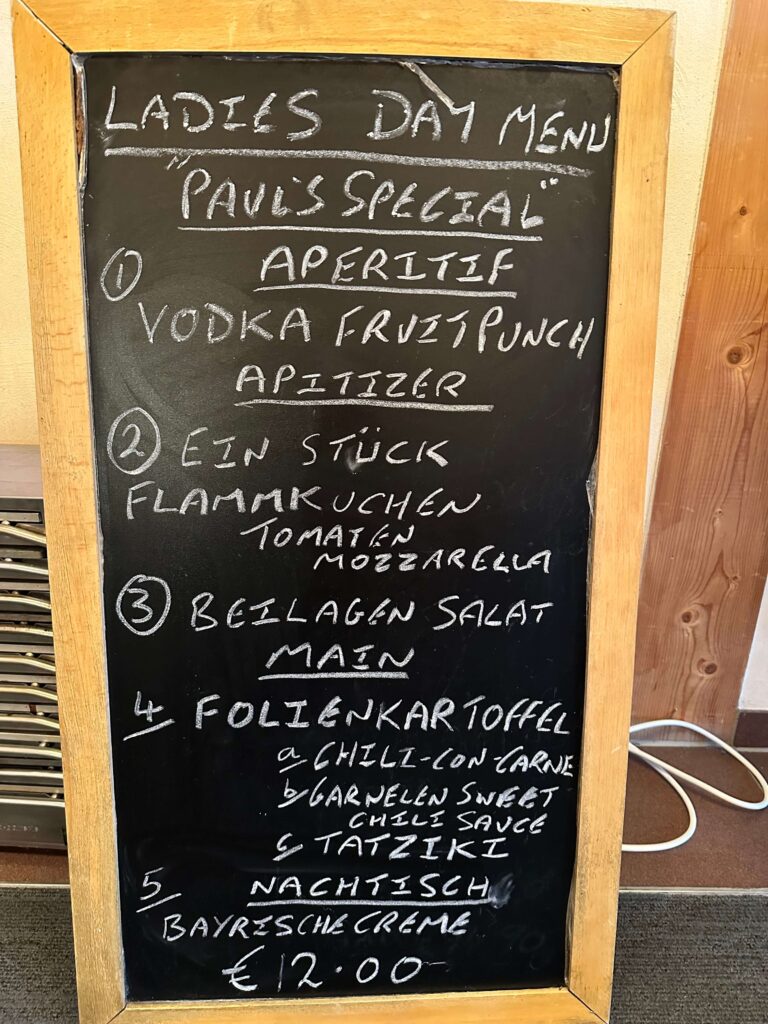 LADIES DAY MENU
"PAUL'S SPECIAL"
① APERITIF
VODKA FRUITPUNCH
APITIZER
② EIN STÜCK
FLAMMKUCHEN
TOMATEN
MOZZARELLA
③ BEILAGEN SALAT
MAIN
4 FOLIENKARTOFFEL
a CHILI-CON-CARNE
b GARNELEN SWEET
CHILI SAUCE
c TATZIKI
5 NACHTISCH
BAYRISCHE CREME
€12.00